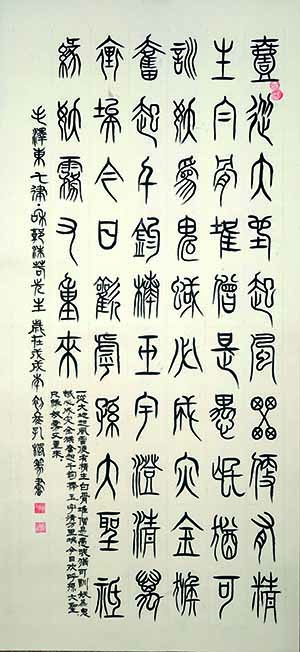 壹從大地起風雷便有精
生白骨堆僧是愚氓猶可
訓妖為鬼蜮必成災金猴
奮起千鈞棒玉宇澄清萬
里埃今日歡呼孫大聖祇
緣妖霧又重來
一從大地起風雷便有精生白骨堆僧是愚氓猶可訓妖為鬼
蜮必成災金猴奮起千鈞棒玉宇澄清萬里埃今日歡呼孫大聖
只緣妖霧又重來
毛澤東七律·和郭沫若先生 歲在戊戌年 篆書